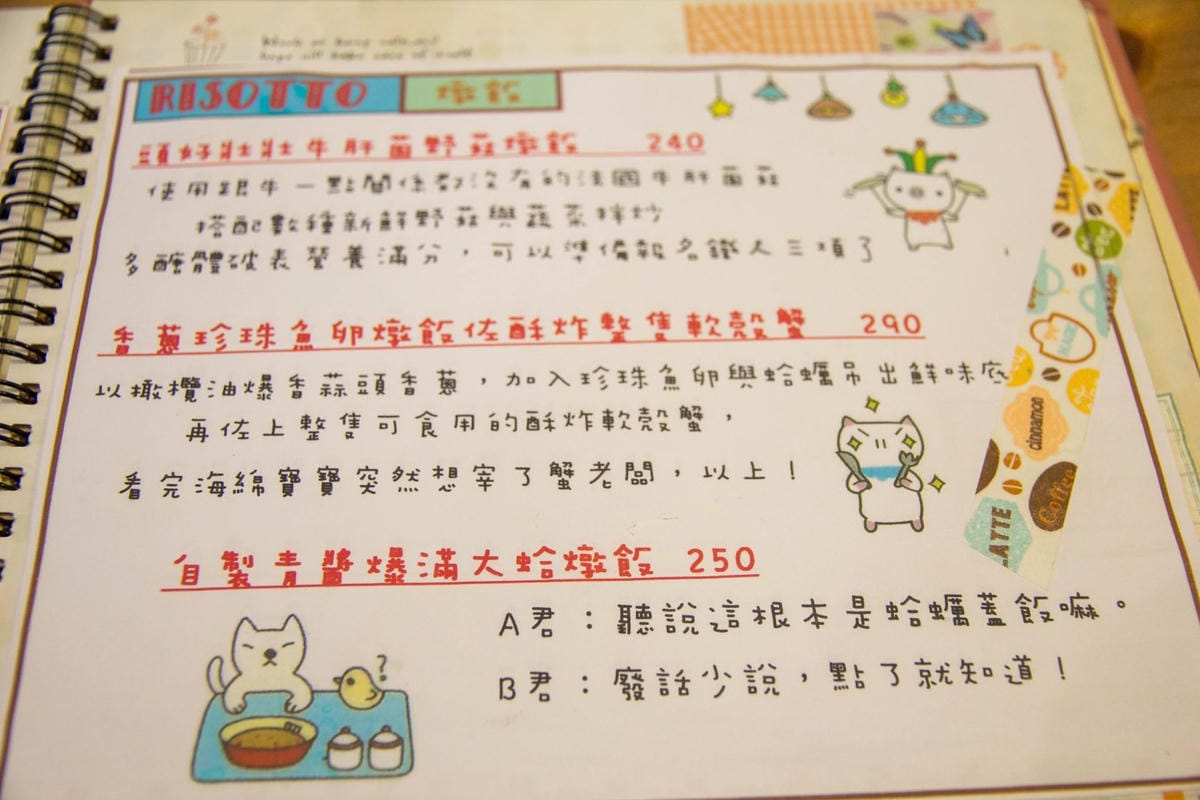 RISOTTO 燉飯
頭好壯壯牛肝菌野菇燉飯 240
使用跟牛一點關係都沒有的法國牛肝菌菇
搭配數種新鮮野菇與蔬菜拌炒
多醣體破表營養滿分，可以準備報名鐵人三項了
香蔥珍珠魚卵燉飯佐酥炸整隻軟殼蟹 290
以橄欖油爆香蒜頭香蔥，加入珍珠魚卵與蛤蠣吊出鮮味底
再佐上整隻可食用的酥炸軟殼蟹，
看完海綿寶寶突然想宰了蟹老闆，以上！
自製青醬爆滿大蛤燉飯 250
A君：聽說這根本是蛤蠣蓋飯嘛。
B君：廢話少說，點了就知道！
?
LATTE
cinnamon
Coffee
LATTE